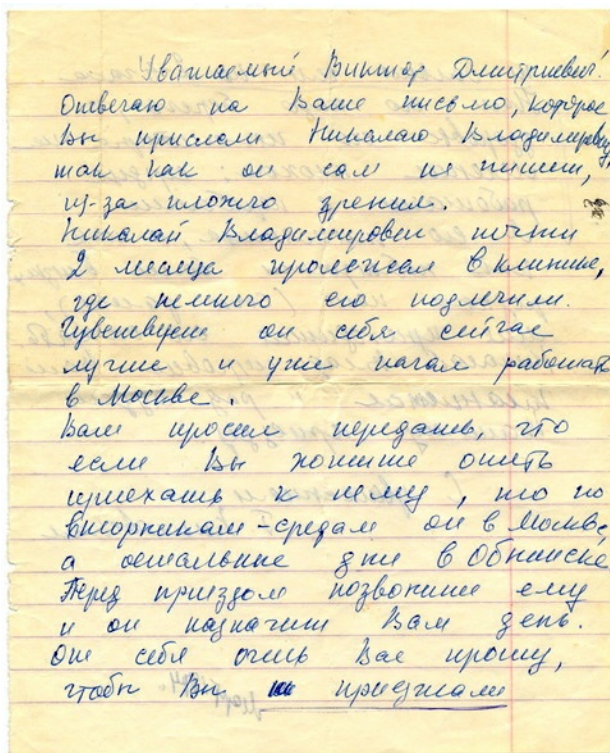 Уважаемый Виктор Дмитриевич!
Отвечаю на Ваше письмо, которое
Вы прислали Николаю Владимировичу,
так как он сам не пишет,
из-за плохого зрения.
Николай Владимирович почти
2 месяца пролежал в клинике,
где немного его подлечили.
Чувствует он себя сейчас
лучше и уже начал работать
в Москве.
Вам просил передать, что
если Вы хотите опять
приехать к нему, то по
вторникам-средам он в Москве,
а остальные дни в Обнинске
Перед приездом позвоните ему
и он назначит Вам день.
От себя очень Вас прошу,
чтобы Вы приезжали